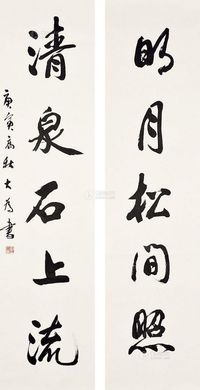 明月松间照
清泉石上流
庚寅高秋大为书